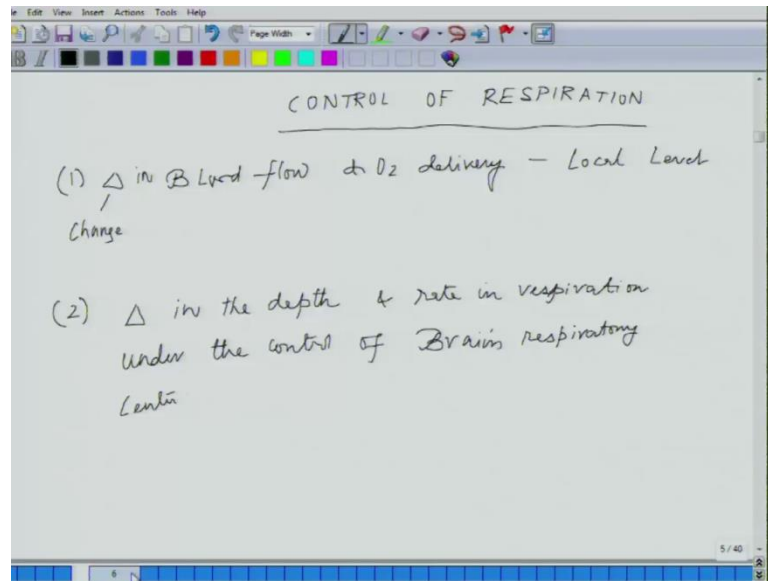 Edit View Insert Actions Tools Help
Page Width
B I
CONTROL OF RESPIRATION
(1) Δ in Blood flow & O2 delivery - Local Level
Change
(2) Δ in the depth & rate in respiration
under the control of Brain's respiratory
Center
5/40
6